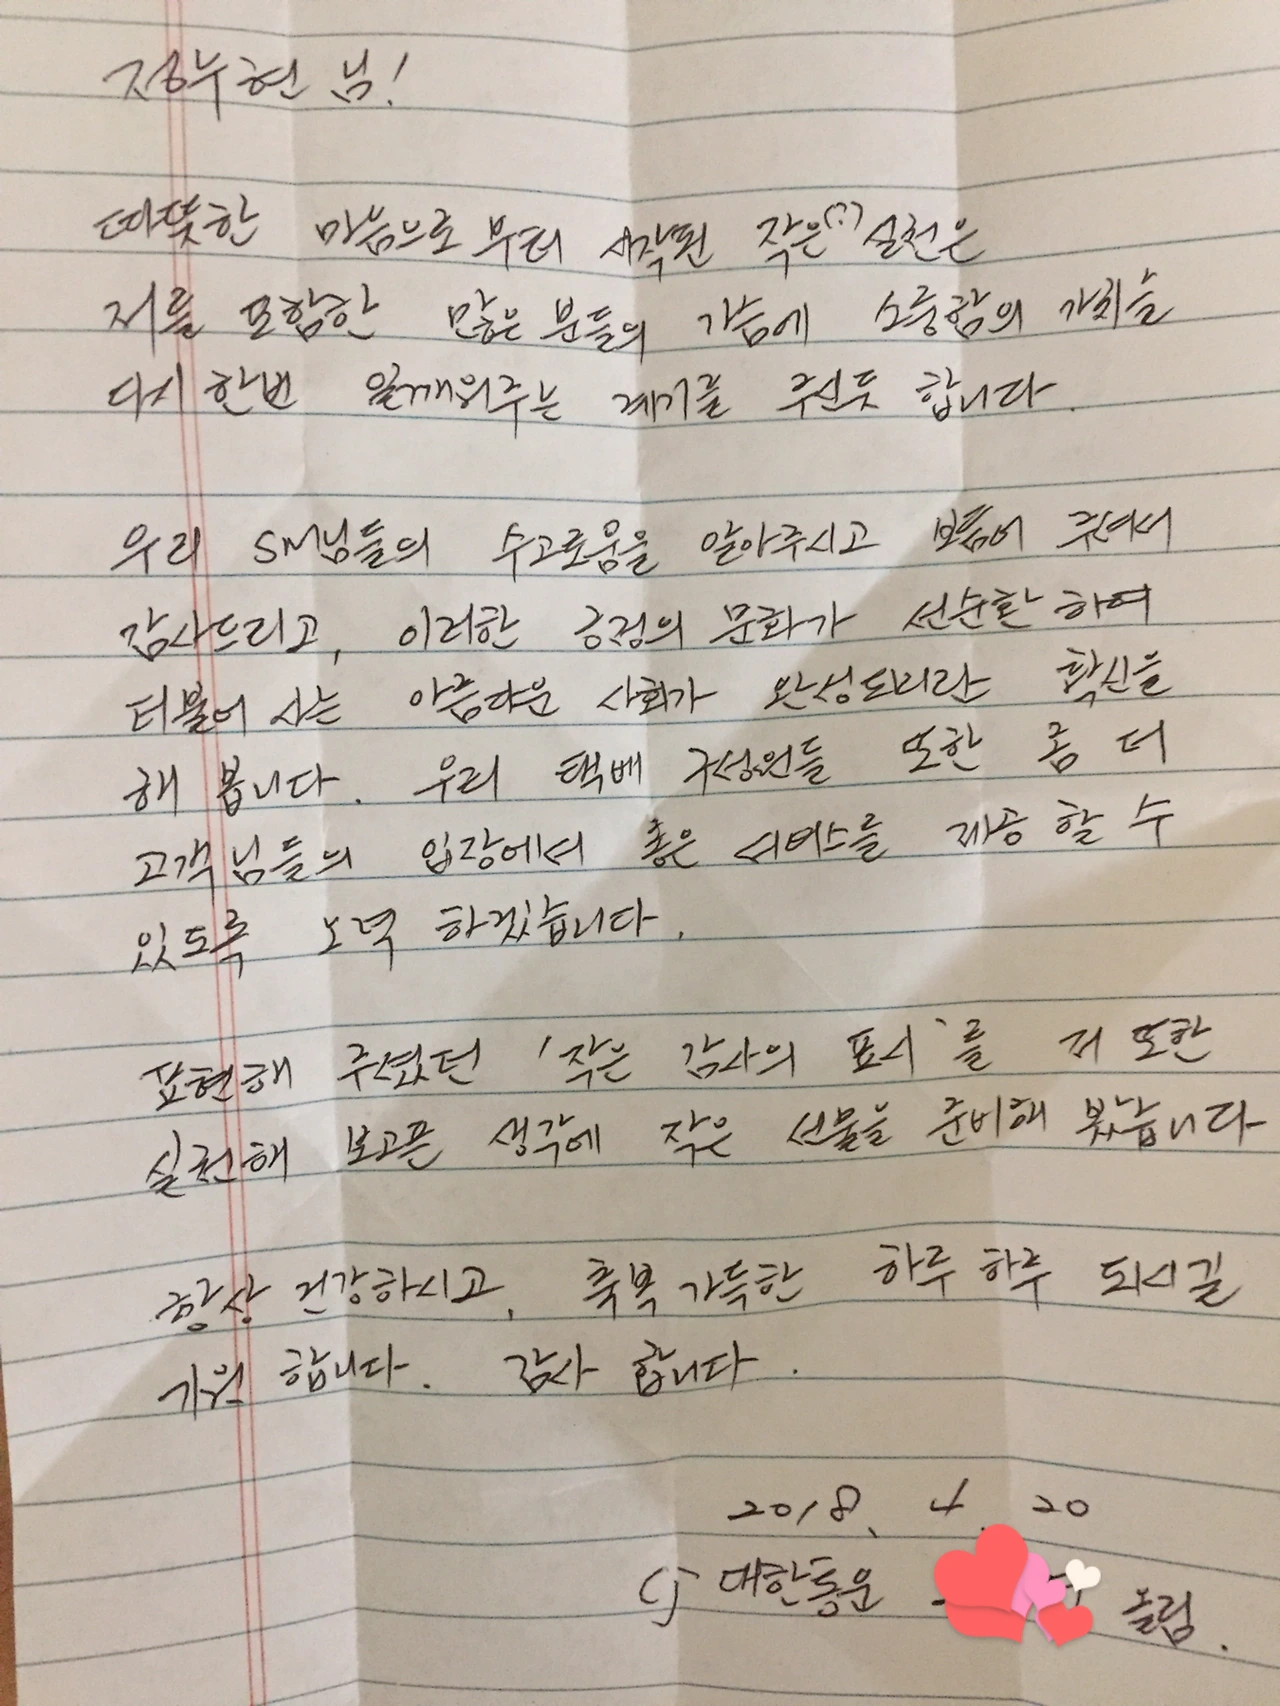 정누현 님!
따뜻한 마음으로부터 시작된 작은(?) 실천은
저를 포함한 많은 분들의 가슴에 소중함의 가치를
다시 한번 일깨워주는 계기를 주신듯 합니다.
우리 SM님들의 수고로움을 알아주시고 보듬어 주셔서
감사드리고, 이러한 긍정의 문화가 선순환 하여
더불어 사는 아름다운 사회가 완성되리란 확신을
해 봅니다. 우리 택배 구성원들 또한 좀 더
고객님들의 입장에서 좋은 서비스를 제공 할 수
있도록 노력 하겠습니다.
표현해 주셨던 '작은 감사의 표시'를 저 또한
실천해 보고픈 생각에 작은 선물을 준비해 봤습니다
항상 건강하시고, 축복 가득한 하루 하루 되시길
기원 합니다. 감사 합니다.
2018. 4. 20
CJ 대한통운 올림.